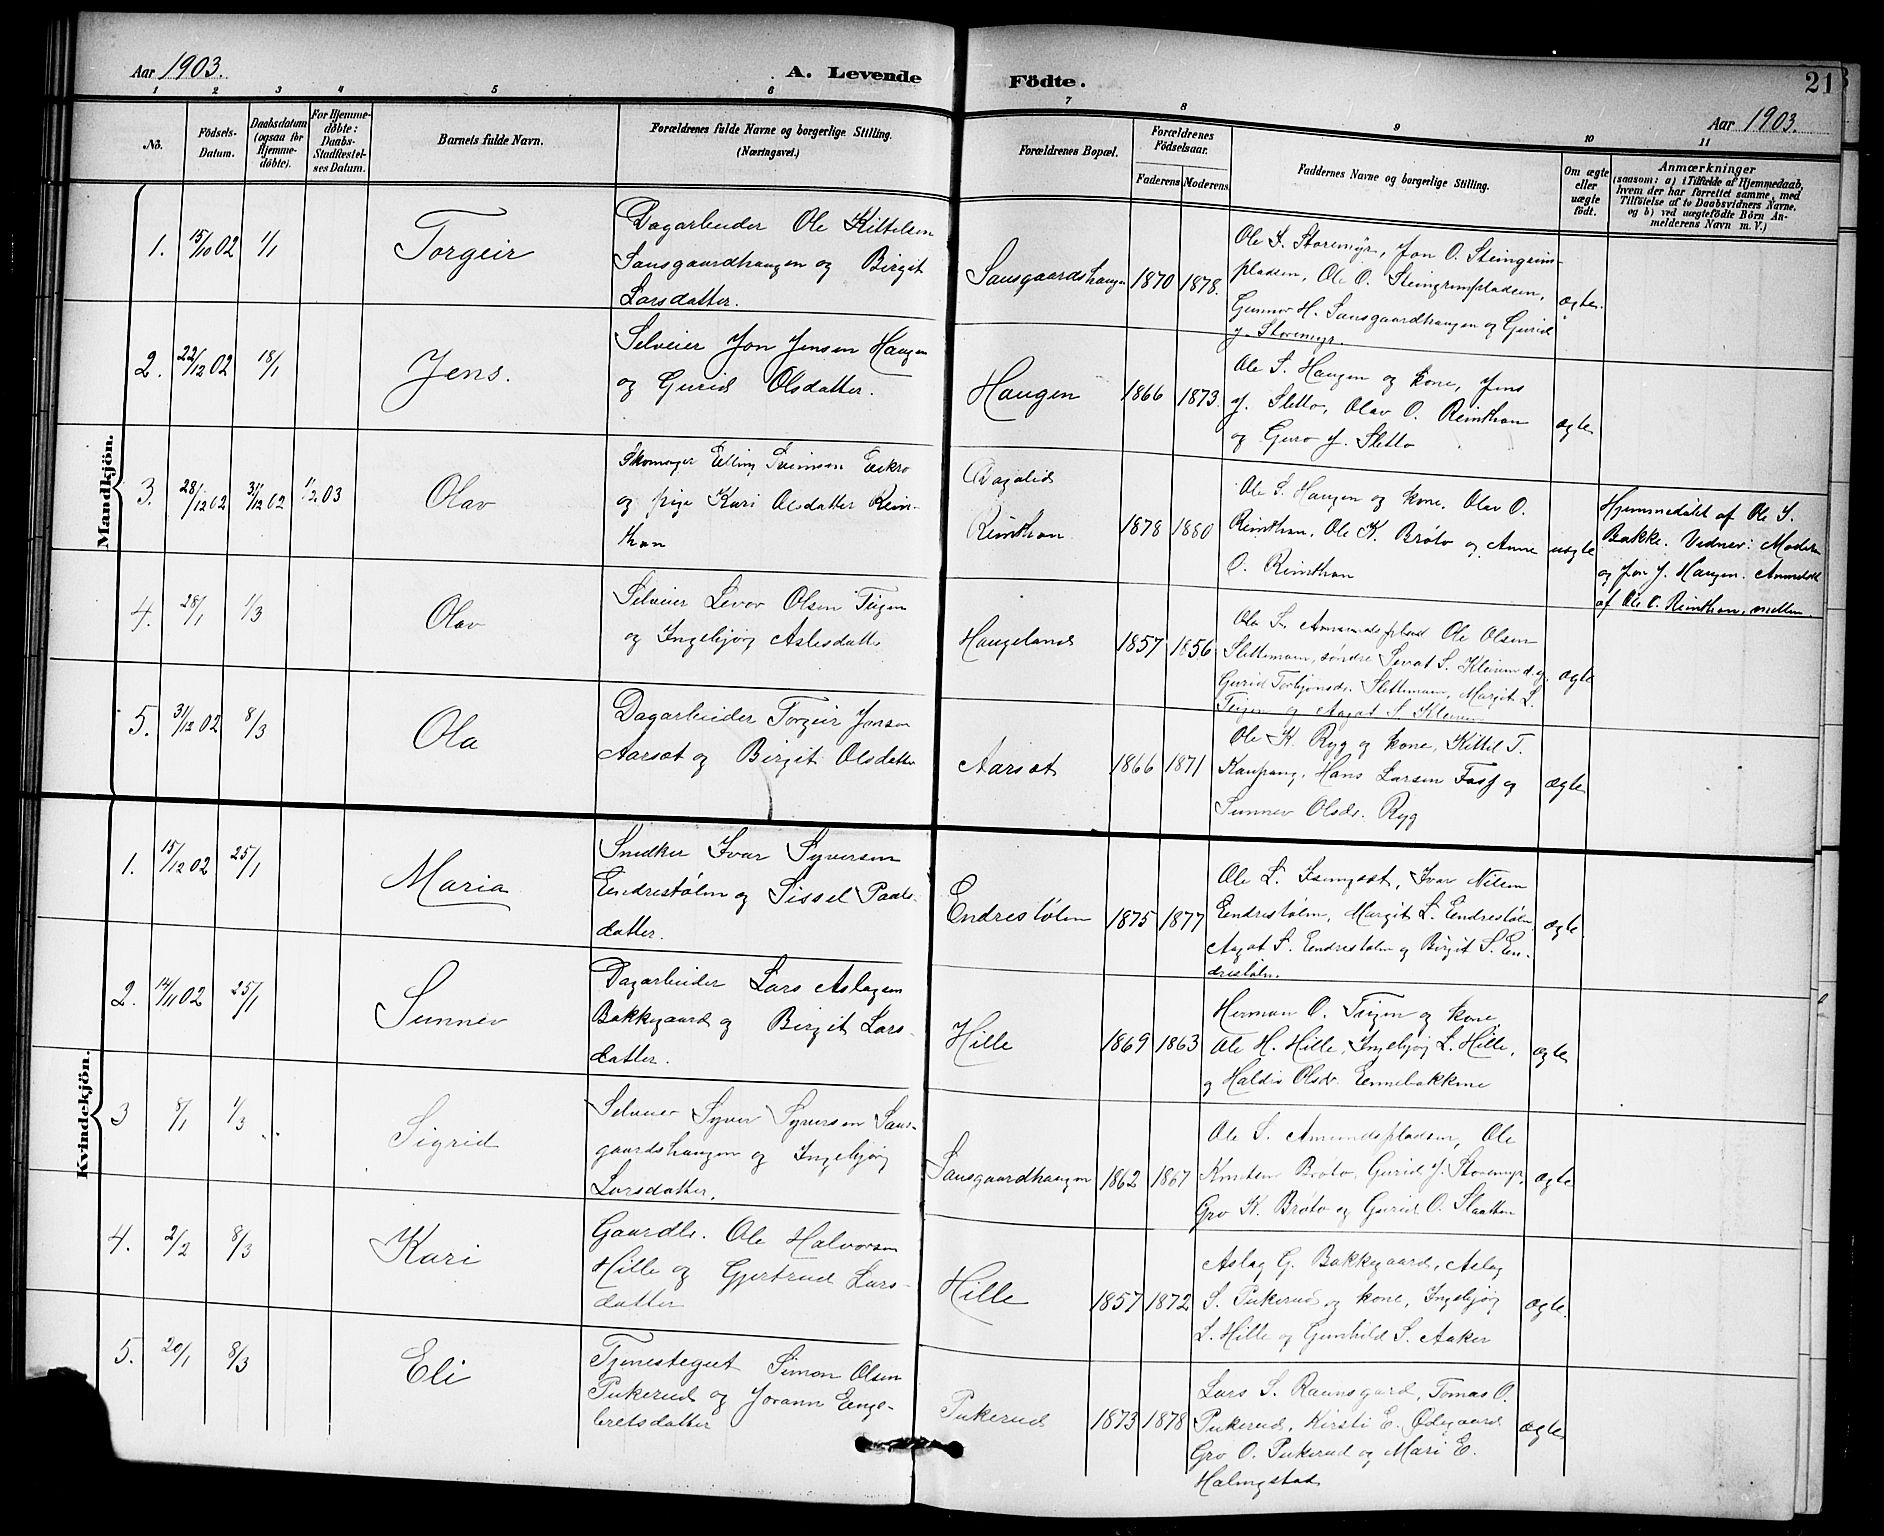 Aar 1903.
A. Levende Födte.
21
Aar 1903.
1 2 3 4 5 6 7 8 9 10 11
No.
Födsels-
Datum.
Daabsdatum
(ogsaa for
Hjemme-
døbte).
For Hjemme-
døbte:
Daabs-
Stadfæstel-
ses Datum.
Barnets fulde Navn.
Forældrenes fulde Navne og borgerlige Stilling.
(Næringsvei.)
Forældrenes Bopæl.
Forældrenes
Födselsaar.
Faderens Moderens
Faddernes Navne og borgerlige Stilling.
Om ægte
eller
uægte
født.
Anmærkninger
(saasom: a) i Tilfælde af Hjemmedaab,
hvem der har forrettet samme, med
Tilföielse af to Daabsvidners Navne.
og b) ved uægtefödte Börn An-
melderens Navn m. V.)
Mandkjön.
1. 15/10 02 1/1 Torgeir
Dagarbeider Ole Kittelsen
Sansgaardhaugen og Birgit
Larsdatter.
Sansgaardshaugen 1870 1878.
Ole S. Storemyr, Jon O. Steingrim-
pladsen, Ole O. Steingrimpladsen,
Gunnor H. Sansgaardhaugen og Gurid
J. Storemyr.
ægte.
2. 22/12 02 18/1 Jens.
Selveier Jon Jensen Haugen
og Gurid Olsdatter.
Haugen 1866 1873.
Ole S. Haugen og kone, Jens
J. Sletto, Olav O. Reinthon
og Guro J. Sletto
ægte
3. 28/12 02 31/12 02 1/2 03 Olav
Skomager Elling
og pige Kari Olsdatter Rein-
ton
Bagalid
Reinthon 1878 1880
Ole S. Haugen og kone. Olav O.
Reinthon, Ole K. Bröto og Anne
O. Reinthon
uægte
Hjemmedöbt af Ole S.
Bakke. Vidner: Moderen
og Jon J. Haugen. Anmeldt
af Ole O. Reinthon, mellem
4. 28/1 1/3 Olav
Selveier Levor Olsen Teigen
og Ingebjörg Aslesdatter
Haugeland 1857 1856
Ole S. Amundsplads Ole Olsen
Slettemoen, söndre Sevat S. Kleiven d.y.
Gurid Torbjörnsdr. Slettemoen, Margit L.
Teigen og Aagot S. Kleiven
ægte
5. 31/12 02 8/3 Ola
Dagarbeider Torgeir Jonsen
Aarsat og Birgit Olsdatter
Aarsat 1866 1871
Ole K. Ryg og kone, Kittel T.
Kaupang, Hans Larsen Fosf og
Sunnev Olsdr. Ryg
ægte
Kvindekjön.
1. 15/12 02 25/1 Maria
Snedker Ivar Syversen
Eendrestölen og Sissel Paals-
datter.
Endrestölen 1875 1877
Ole L., Ivar Nilsen
Eendrestölen, Margit L. Eendrestölen
Aagot S. Eendrestölen og Birgit S. En-
drestölen.
ægte.
2. 14/11 02 25/1 Sunnev
Dagarbeider Lars Aslagsen
Bakkegaard og Birgit Lars-
datter.
Hille 1869 1863
Herman O. Teigen og kone,
Ole H. Hille, Ingebjörg L. Hille,
og Haldis Olsdr. Eennebakkene
ægte
3 8/1 1/3 Sigrid
Selveier Syver Syversen Sans-
gaardshaugen og Ingebjörg
Larsdatter.
Sansgaardhaugen 1862 1867
Ole S. Amundspladsen, Ole
Knutsen Bröto, Gurid J. Storemyr,
Gro K. Bröto og Gurid O. Slaatten
ægte
4. 2/2 8/3 Kari
Gaardbr. Ole Halvorsen
Hille og Gjertrud Lars-
datter
Hille 1857 1872
Aslag G. Bakkegaard, Aslag
S. Pukerud og kone, Ingebjörg
L. Hille og Gunhild S. Aaker
ægte.
5. 20/1 8/3 Eli
Tjenestegut Simon Olsen
Pukerud og Jorann Enge-
bretsdatter
Pukerud 1873 1878
Lars S. Raunsgard, Tomas O.
Pukerud, Kirsti E. Ödegaard
Gro O. Pukerud og Mari E.
Halmgstad
ægte